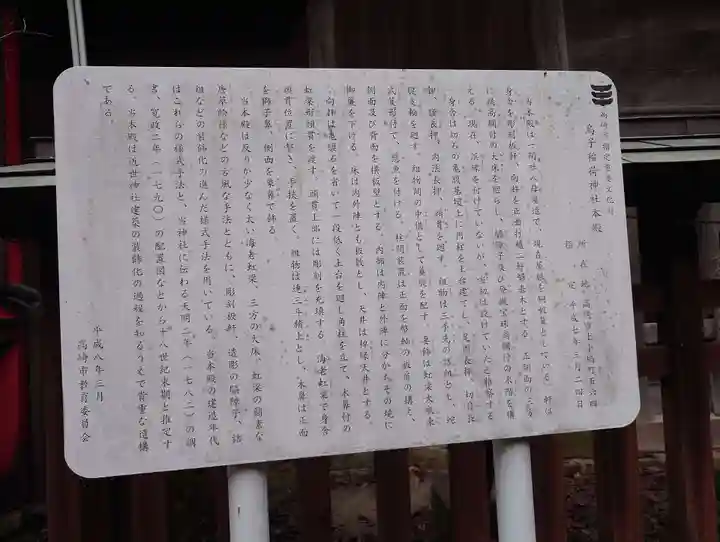 高崎市指定重要文化財
烏子稲荷神社本殿
所在地 高崎市上小塙町五六四
指定 平成七年三月二四日
当本殿は一間社入母屋造で、現在屋根を銅板葺としている。軒は
身舎を彫刻板軒、向拝を正面打越二軒繁垂木とする。正側面の三方
に擬宝珠高欄付の大床を廻らし、脇障子及び
える。現在、浜床を付けていないが、当初は設けていたと推察する
身舎は切石の亀腹基壇上に円柱を土台建てし、足固長押、切目長
押、腰長押、内法長押、頭貫を廻す。組物は三手先の詰組とし、蛇
腹支輪を廻す。組物間の中備として蟇股を配す。妻飾は虹梁大瓶束
式変形付で、懸魚を付ける。柱間装置は正面を幣軸の板扉の構え、
側面及び背面を横板壁とする。内部は内陣と外陣に分かちその境に
御簾を下げる。床は内外陣とも板敷とし、天井は棹縁天井とする。
向拝は亀腹石を省いて一段低く土台を廻し角柱を立て、木鼻付の
虹梁形頭貫を渡す。頭貫上部には彫刻を充填する。海老虹梁で身舎
頭貫位置に繋ぎ、手挟を置く。組物は連三斗積上とし、木鼻は正面
を獅子鼻、側面を象鼻で飾る。
当本殿は反りが少なく太い海老虹梁、三方の大床、虹梁の簡素な
唐草絵様などの古風な手法とともに、彫刻板軒、透彫の脇障子、詰
組などの装飾化の進んだ様式手法を用いている。当本殿の建造年代
はこれらの様式手法と、当神社に伝わる天明二年（一七八二）の調
書、寛政二年（一七九〇）の配置図などから十八世紀末期と推定す
る。当本殿は近世神社建築の装飾化の過程を知るうえで貴重な遺構
である。
平成八年三月
高崎市教育委員会